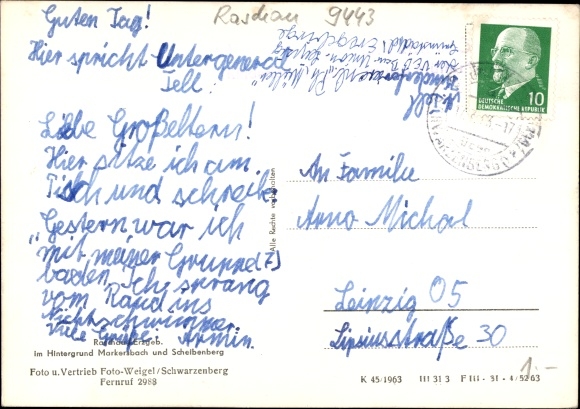 Guten Tag!
Hier spricht Untergeneral
Tell
Liebe Großeltern!
Hier sitze ich am
Tisch und schreibe
Gestern war ich
mit meiner Gruppe (7)
baden. Ich sprang
vom Rand ins
Nichtschwimmer.
Viele Grüße. Armin.
Raschau 9443
DEUTSCHE
DEMOKRATISCHE REPUBLIK
10
An Familie
Arno Michael
Leipzig O5
Lipsiusstraße 30
Alle Rechte vorbehalten
Raschau/Erzgeb.
im Hintergrund Markersbach und Scheibenberg
Foto u. Vertrieb Foto-Weigel/Schwarzenberg
Fernruf 2988
K 45/1963 III 31 3 F III - 31 - 4/5263
1.-